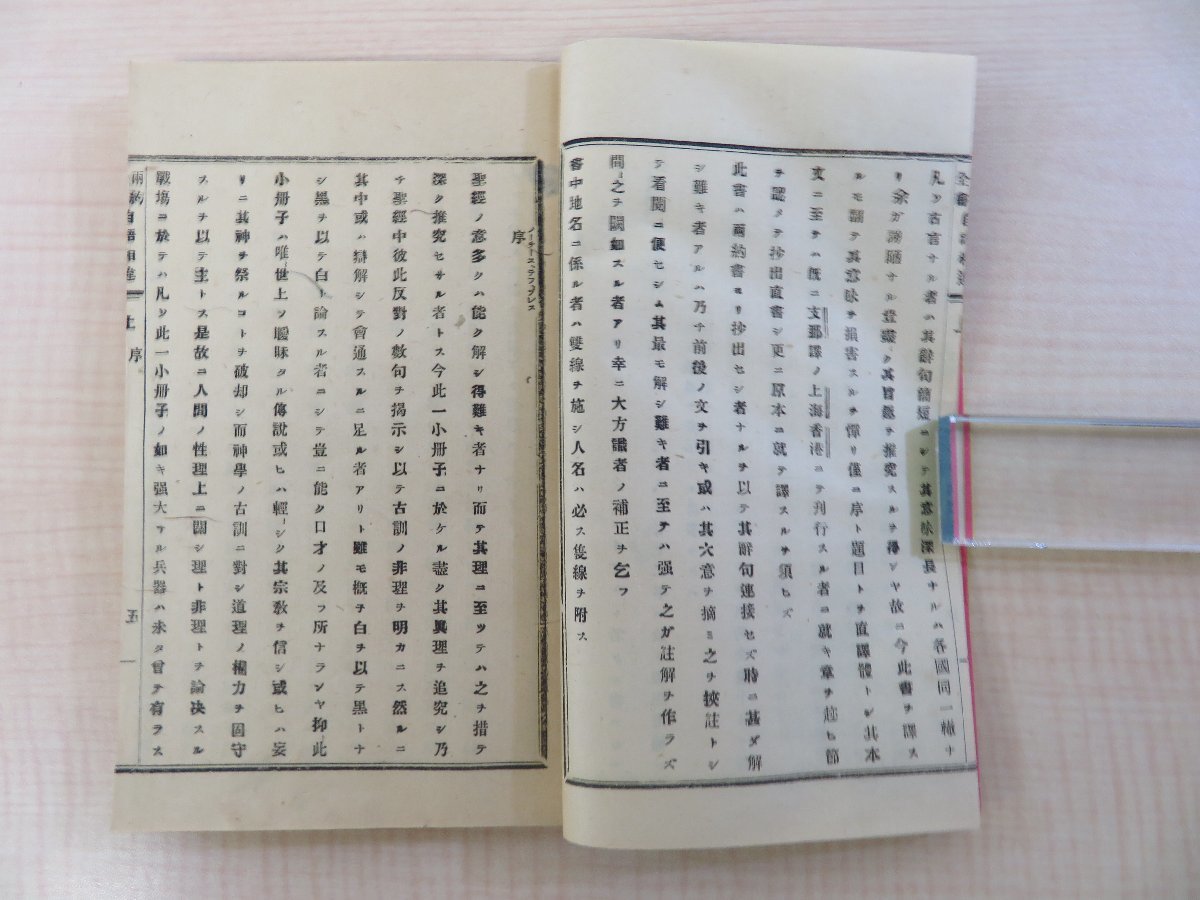 凡ソ古言ナル者ハ其辭句簡短ニシテ其意味深長ナルハ各國同一轍ナ
リ余ガ淺陋ナル豈盡ク其旨趣ヲ推究スルヲ得ンヤ故ニ今此書ヲ譯ス
ルモ翻テ其意味ヲ損害スルヲ憚リ僅ニ序ト題目トヲ直譯體トシ其本
文ニ至テハ既ニ支那譯ノ上海香港ニテ刊行スル者ニ就キ章ヲ起ヒ節
ヲ認メテ抄出直書シ更ニ原本ニ就テ譯スルヲ須ヒズ
此書ハ兩約書ヨリ抄出セシ者ナルヲ以テ其辭句連接セズ時ニ甚ダ解
シ難キ者アルハ乃チ前後ノ文ヲ引キ或ハ其大意ヲ摘ミ之ヲ挾註トシ
テ看閱ニ便セシム其最モ解シ難キ者ニ至テハ强テ之ガ註解ヲ作ラズ
間之ヲ闕如スル者アリ幸ニ大方識者ノ補正ヲ乞フ
書中地名ニ係ル者ハ雙線ヲ施シ人名ハ必ス隻線ヲ附ス
序
聖經ノ意多クハ能ク解シ得難キ者ナリ而テ其理ニ至ツテハ之ヲ措テ
深ク推究セサル者トス今此一小册子ニ於ケル盡ク其異理ヲ追究シ乃
テ聖經中彼此反對ノ數句ヲ揭示シ以テ古訓ノ非理ヲ明カニス然ルニ
其中或ハ辯解シテ會通スルニ足ル者アリト雖モ概チ白ヲ以テ黑トナ
シ黑ヲ以テ白ト論スル者ニシテ豈ニ能ク口才ノ及フ所ナランヤ抑此
小册子ハ唯世上ノ曖昧タル傳說或ヒハ輕〻シク其宗敎ヲ信シ或ヒハ妄
リニ其神ヲ祭ルコトヲ破却シ而神學ノ古訓ニ對シ道理ノ權力ヲ固守
スルヲ以テ主トス是故ニ人間ノ性理上ニ關シ理ト非理トヲ論決スル
戰場ニ於テハ凡ソ此一小册子ノ如キ强大ナル兵器ハ未タ曾テ有ラス
上 序
五